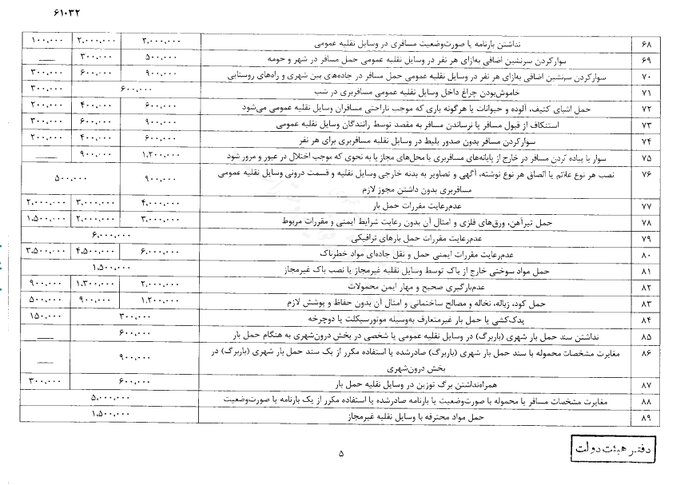 ۶۱۰۳۲
۶۸ نداشتن بارنامه یا صورت‌وضعیت مسافری در وسایل نقلیه عمومی ۲،۰۰۰،۰۰۰ ۲،۰۰۰،۰۰۰ ۱۰۰،۰۰۰
۶۹ سوارکردن سرنشین اضافی به‌ازای هر نفر در وسایل نقلیه عمومی حمل مسافر در شهر و حومه ۵۰۰،۰۰۰ ۳۰۰،۰۰۰ ——
۷۰ سوارکردن سرنشین اضافی به‌ازای هر نفر در وسایل نقلیه عمومی حمل مسافر در جاده‌های بین شهری و راه‌های روستایی ۹۰۰،۰۰۰ ۶۰۰،۰۰۰ ۳۰۰،۰۰۰
۷۱ خاموش‌بودن چراغ داخل وسایل نقلیه عمومی مسافربری در شب ۶۰۰،۰۰۰ ۳۰۰،۰۰۰
۷۲ حمل اشیای کثیف، آلوده و حیوانات یا هرگونه باری که موجب ناراحتی مسافران وسایل نقلیه عمومی می‌شود ۶۰۰،۰۰۰ ۴۰۰،۰۰۰ ۲۰۰،۰۰۰
۷۳ استنکاف از قبول مسافر یا نرساندن مسافر به مقصد توسط رانندگان وسایل نقلیه عمومی ۹۰۰،۰۰۰ ۶۰۰،۰۰۰ ۳۰۰،۰۰۰
۷۴ سوارکردن مسافر بدون صدور بلیط در وسایل نقلیه مسافربری برای هر نفر ۶۰۰،۰۰۰ ۴۰۰،۰۰۰ ۲۰۰،۰۰۰
۷۵ سوار یا پیاده کردن مسافر در خارج از پایانه‌های مسافربری یا محل‌های مجاز یا به نحوی که موجب اختلال در عبور و مرور شود ۱،۲۰۰،۰۰۰ ۹۰۰،۰۰۰ ——
۷۶ نصب هر نوع علائم یا الصاق هر نوع نوشته، آگهی و تصاویر به بدنه خارجی وسایل نقلیه و قسمت درونی وسایل نقلیه عمومی ۹۰۰،۰۰۰ ۵۰۰،۰۰۰
مسافربری بدون داشتن مجوز لازم
۷۷ عدم‌رعایت مقررات حمل بار ۴،۰۰۰،۰۰۰ ۳،۰۰۰،۰۰۰ ۲،۰۰۰،۰۰۰
۷۸ حمل تیرآهن، ورق‌های فلزی و امثال آن بدون رعایت شرایط ایمنی و مقررات مربوط ۳،۰۰۰،۰۰۰ ۲،۰۰۰،۰۰۰ ۱،۵۰۰،۰۰۰
۷۹ عدم‌رعایت مقررات حمل بارهای ترافیکی ۶،۰۰۰،۰۰۰
۸۰ عدم‌رعایت مقررات ایمنی حمل و نقل جاده‌ای مواد خطرناک ۶،۰۰۰،۰۰۰ ۴،۵۰۰،۰۰۰ ۳،۵۰۰،۰۰۰
۸۱ حمل مواد سوختی خارج از باک توسط وسایل نقلیه غیرمجاز یا نصب باک غیرمجاز ۱،۵۰۰،۰۰۰
۸۲ عدم‌بارگیری صحیح و مهار ایمن محمولات ۲،۰۰۰،۰۰۰ ۱،۳۰۰،۰۰۰ ۹۰۰،۰۰۰
۸۳ حمل کود، زباله، نخاله و مصالح ساختمانی و امثال آن بدون حفاظ و پوشش لازم ۱،۲۰۰،۰۰۰ ۹۰۰،۰۰۰ ۵۰۰،۰۰۰
۸۴ یدک‌کشی یا حمل بار غیرمتعارف به‌وسیله موتورسیکلت یا دوچرخه ۳۰۰،۰۰۰ ۱۵۰،۰۰۰
۸۵ نداشتن سند حمل بار شهری (باربرگ) در وسایل نقلیه عمومی یا شخصی در بخش درون‌شهری به هنگام حمل بار ۶۰۰،۰۰۰ ——
۸۶ مغایرت مشخصات محموله با سند حمل بار شهری (باربرگ) صادرشده یا استفاده مکرر از یک سند حمل بار شهری (باربرگ) در ۹۰۰،۰۰۰ ——
بخش درون‌شهری
۸۷ همراه‌نداشتن برگ توزین در وسایل نقلیه حمل بار ۶۰۰،۰۰۰ ۳۰۰،۰۰۰
۸۸ مغایرت مشخصات مسافر یا محموله با صورت‌وضعیت یا بارنامه صادرشده یا استفاده مکرر از یک بارنامه یا صورت‌وضعیت ۵،۰۰۰،۰۰۰
۸۹ حمل مواد محترقه با وسایل نقلیه غیرمجاز ۱،۵۰۰،۰۰۰
دفتر هیئت دولت
۵